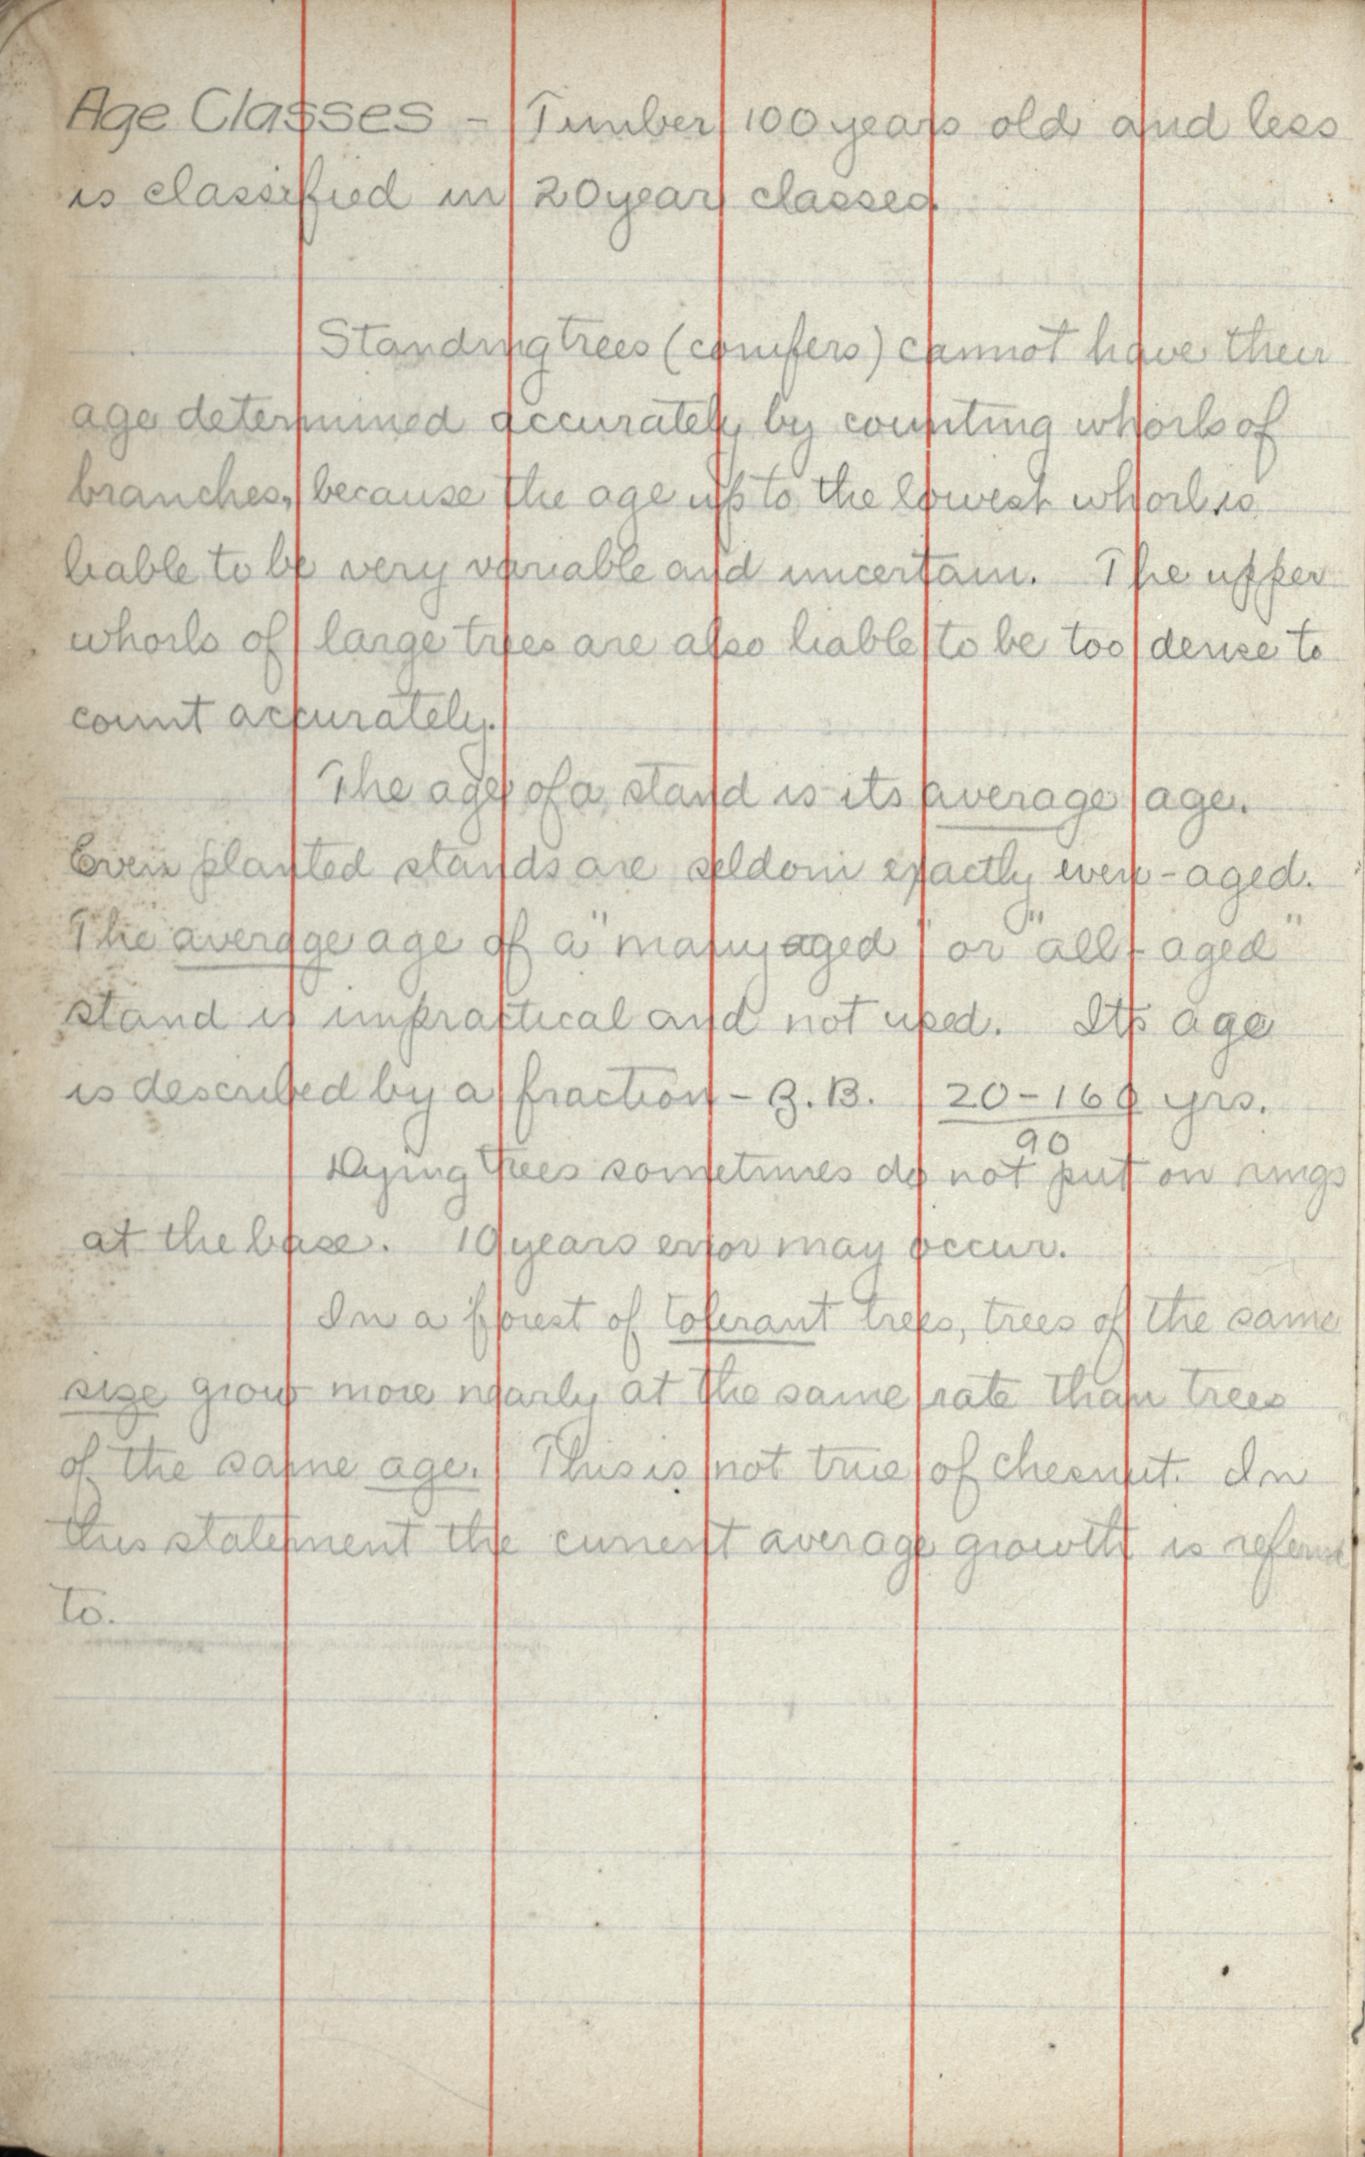 Age Classes - Timber 100 years old and less
is classified in 20 year classes.
Standing trees (conifers) cannot have their
age determined accurately by counting whorls of
branches, because the age up to the lowest whorl is
liable to be very variable and uncertain. The upper
whorls of large trees are also liable to be too dense to
count accurately.
The age of a stand is its average age.
Even planted stands are seldom exactly even-aged.
The average age of a "many aged" or "all-aged"
stand is impractical and not used. Its age
is described by a fraction - Z.B. 20-160 yrs.
90
Dying trees sometimes do not put on rings
at the base. 10 years error may occur.
In a forest of tolerant trees, trees of the same
size grow more nearly at the same rate than trees
of the same age. This is not true of chesnut. In
this statement the current average growth is referred
to.